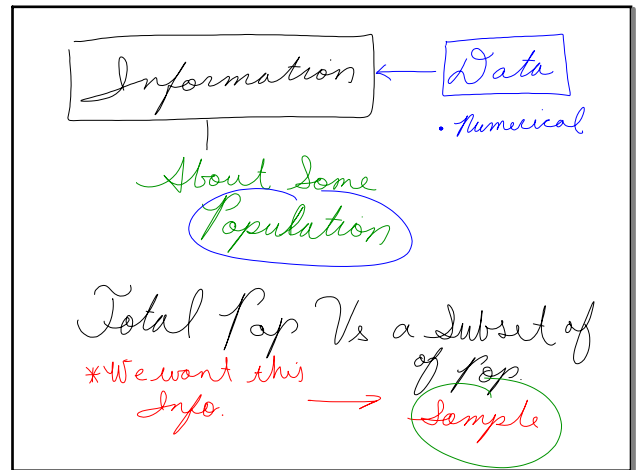 Information
Data
• Numerical
About Some
Population
Total Pop Vs a Subset of
of Pop.
*We want this
Info.
Sample